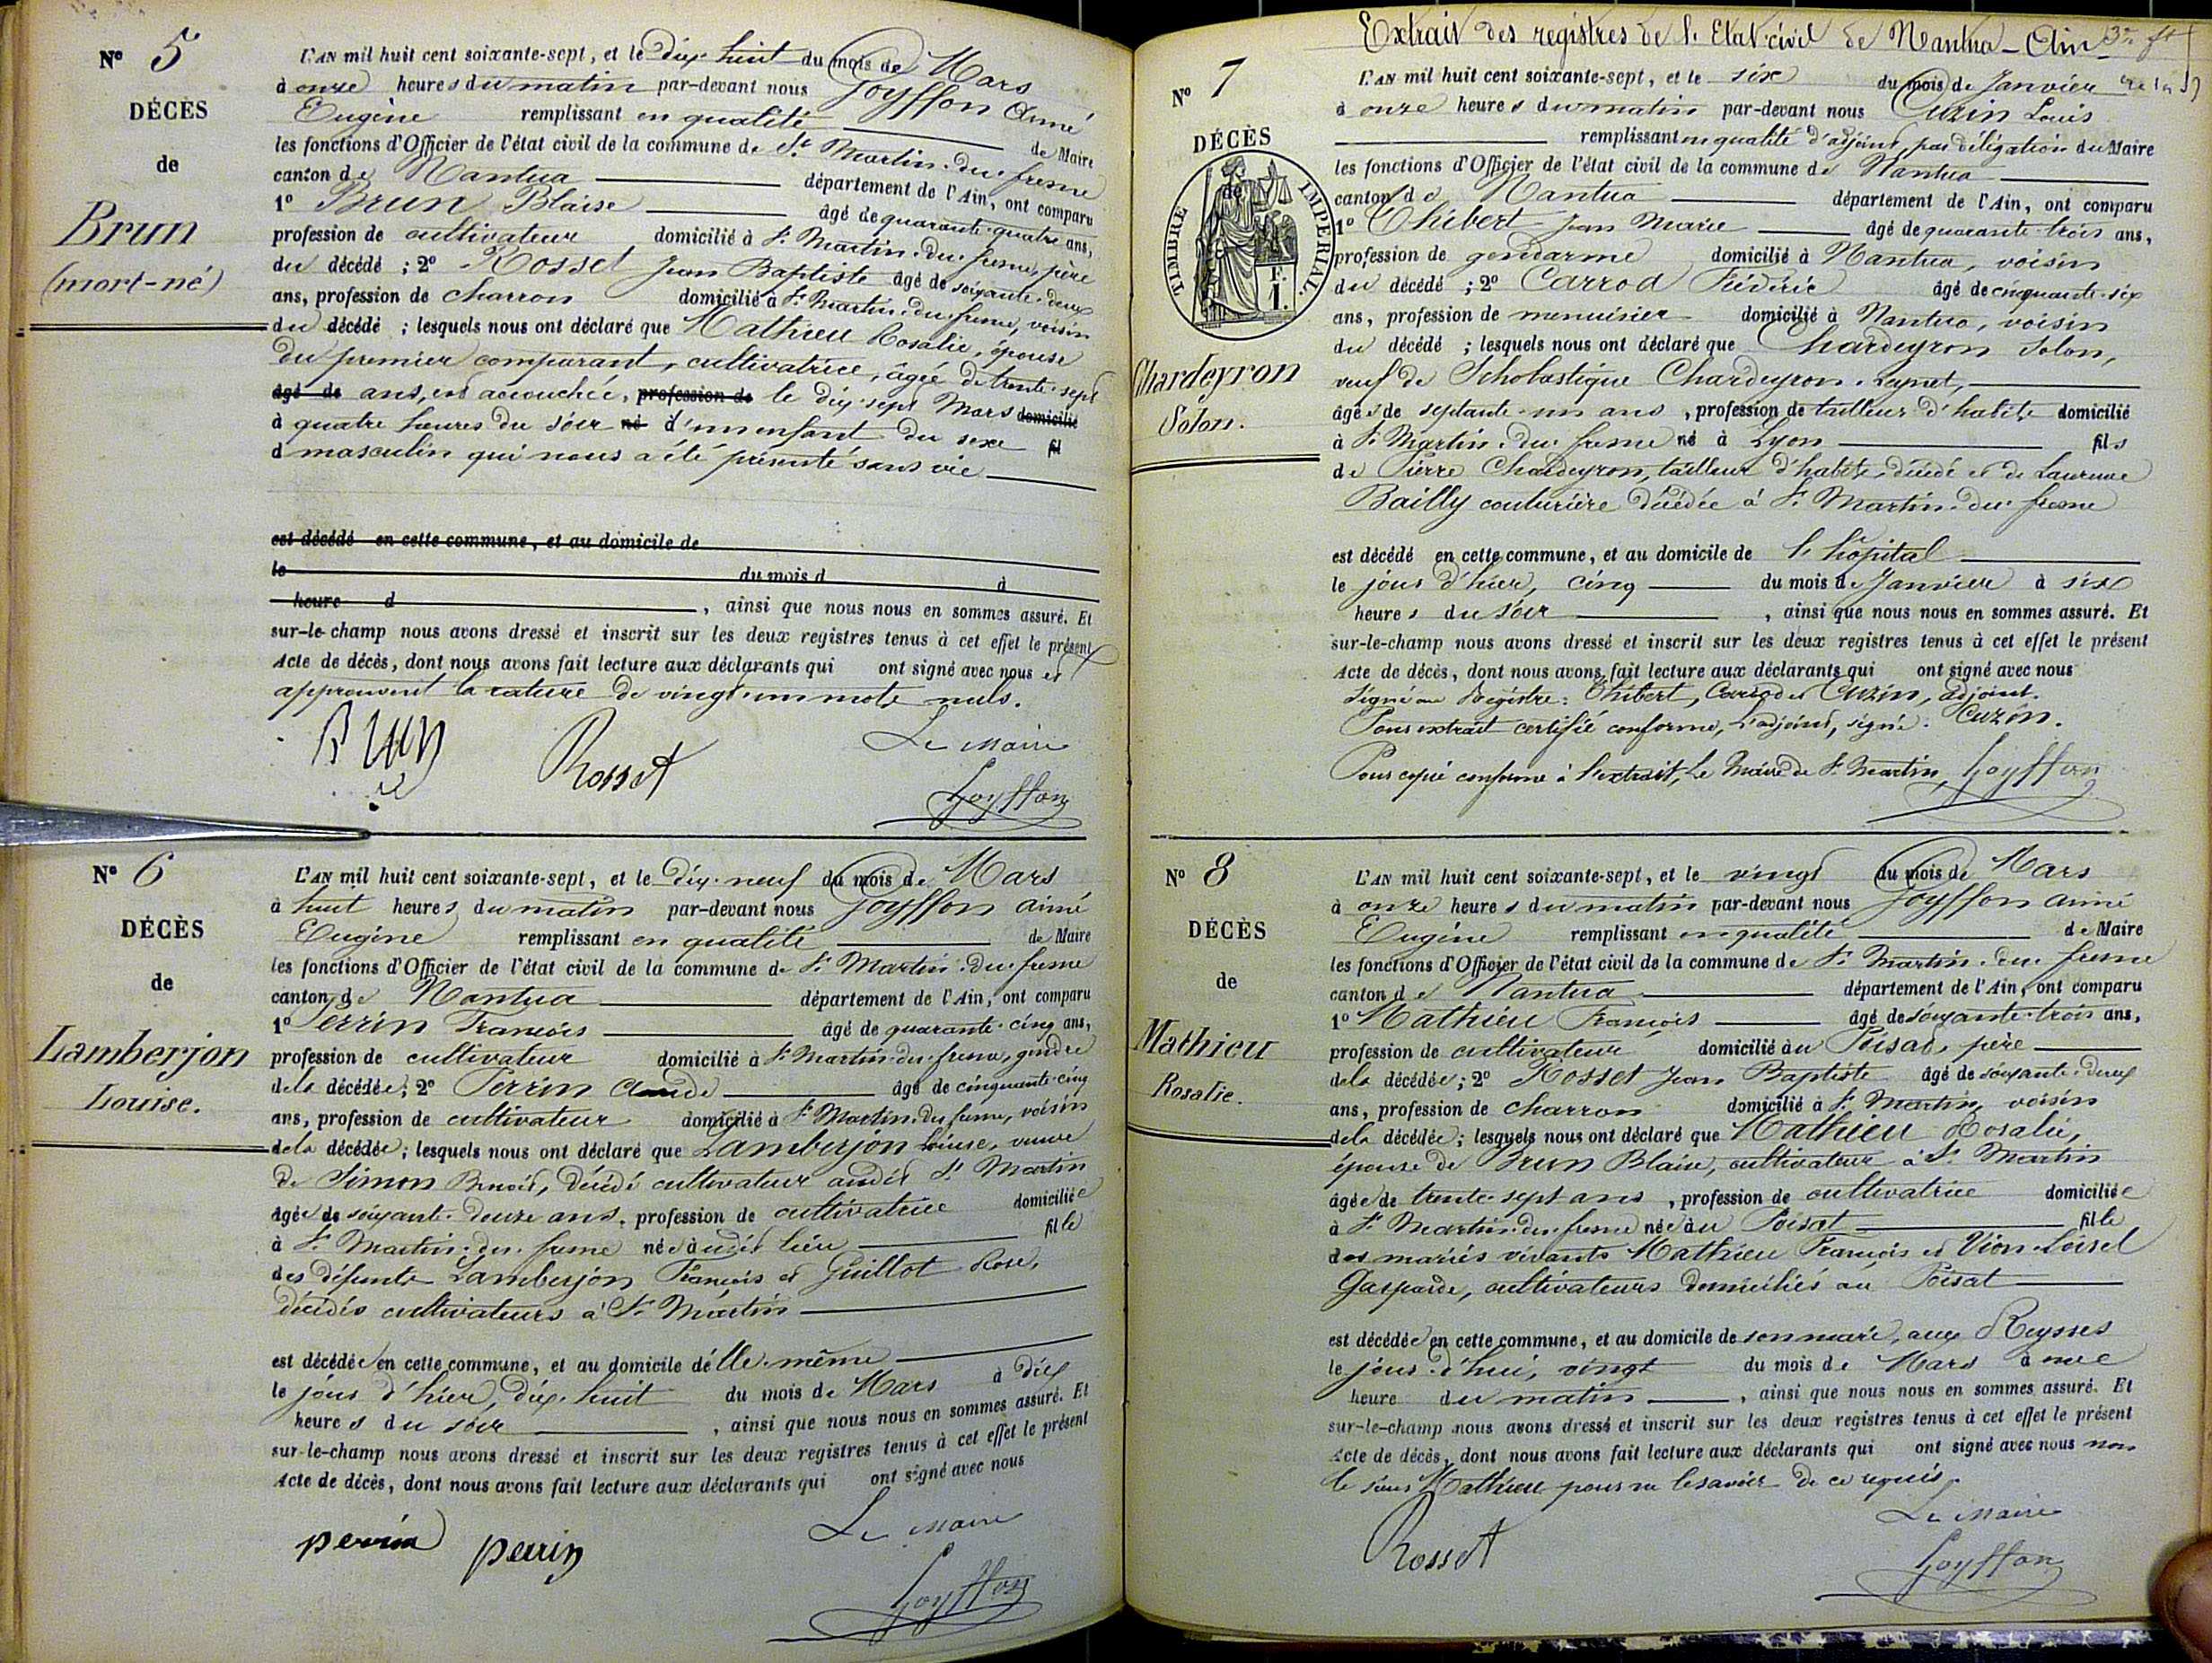 Nº 5
DÉCÈS
de
Brun
(mort-né)
L'AN mil huit cent soixante-sept, et le dix huit du mois de Mars
à onze heures du matin par-devant nous Goyffon Aimé
Eugène remplissant en qualité de Maire
les fonctions d'Officier de l'état civil de la commune de St Martin-du-fresne
canton de Nantua département de l'Ain, ont comparu
1º Brun Blaise âgé de quarante-quatre ans,
profession de cultivateur domicilié à St Martin-du-fresne, père
du décédé ; 2º Rosset Jean Baptiste âgé de soixante-deux
ans, profession de charron domicilié à St Martin-du-fresne, voisin
du décédé ; lesquels nous ont déclaré que Mathieu Rosalie, épouse
du premier comparant, cultivatrice, âgée de trente-sept
âgé de ans, est accouchée, profession de le dix-sept Mars domicilié
à quatre heures du soir né d'un enfant du sexe fil
d masculin qui nous a été présenté sans vie
est décédé en cette commune, et au domicile de
le du mois d à
heure d , ainsi que nous nous en sommes assuré. Et
sur-le-champ nous avons dressé et inscrit sur les deux registres tenus à cet effet le présent
Acte de décès, dont nous avons fait lecture aux déclarants qui ont signé avec nous et
approuvent la rature de vingt-un mots nuls.
Brun
Rosset
Le Maire
Goyffon
Nº 6
DÉCÈS
de
Lamberjon
Louise.
L'AN mil huit cent soixante-sept, et le dix-neuf du mois de Mars
à huit heures du matin par-devant nous Goyffon aimé
Eugène remplissant en qualité de Maire
les fonctions d'Officier de l'état civil de la commune de St Martin-du-fresne
canton de Nantua département de l'Ain, ont comparu
1º Perrin François âgé de quarante-cinq ans,
profession de cultivateur domicilié à St Martin-du-fresne, gendre
dela décédée; 2º Perrin Claude âgé de cinquante-cinq
ans, profession de cultivateur domicilié à St Martin-du-fresne, voisin
dela décédée; lesquels nous ont déclaré que Lamberjon Louise, veuve
de Simon Benoit, décédé cultivateur audit St Martin
âgée de soixante-douze ans, profession de cultivatrice domiciliée
à St Martin-du-fresne née audit lieu fille
des défunts Lamberjon François et Guillot Rose,
décédés cultivateurs à St Martin
est décédée en cette commune, et au domicile délle-même
le jour d'hier, dix-huit du mois de Mars à dix
heures du soir , ainsi que nous nous en sommes assuré. Et
sur-le-champ nous avons dressé et inscrit sur les deux registres tenus à cet effet le présent
Acte de décès, dont nous avons fait lecture aux déclarants qui ont signé avec nous
perrin perrin
Le Maire
Goyffon
Extrait des registres de l'Etat-civil de Nantua - Ain
Nº 7
DÉCÈS
de
TIMBRE IMPERIAL.
1 F.
Chardeyron
Solon.
L'AN mil huit cent soixante-sept, et le six du mois de Janvier
à onze heures du matin par-devant nous Cuzin Louis
remplissant en qualité d'adjoint, par délégation du Maire
les fonctions d'Officier de l'état civil de la commune de Nantua
canton de Nantua département de l'Ain, ont comparu
1º Thibert Jean Marie âgé de quarante-trois ans,
profession de gendarme domicilié à Nantua, voisin
du décédé ; 2º Carrod Frédéric âgé de cinquante-six
ans, profession de menuisier domicilié à Nantua, voisin
du décédé ; lesquels nous ont déclaré que Chardeyron Solon,
veuf de Scholastique Chardeyron-Reynet,
âgé de septante-un ans, profession de tailleur d'habits domicilié
à St Martin-du-fresne né à Lyon fils
de Pierre Chardeyron, tailleur d'habits, décédé et de Laurence
Bailly couturière décédée à St Martin-du-fresne
est décédé en cette commune, et au domicile de l'hôpital
le jour d'hier, cinq du mois de Janvier à six
heures du soir , ainsi que nous nous en sommes assuré. Et
sur-le-champ nous avons dressé et inscrit sur les deux registres tenus à cet effet le présent
Acte de décès, dont nous avons fait lecture aux déclarants qui ont signé avec nous
Signé au Registre: Thibert, Carrod et Cuzin, adjoint.
Pour extrait certifié conforme, L'adjoint, signé: Cuzin.
Pour copie conforme à l'extrait, Le Maire de St Martin, Goyffon
Nº 8
DÉCÈS
de
Mathieu
Rosalie.
L'AN mil huit cent soixante-sept, et le vingt du mois de Mars
à onze heures du matin par-devant nous Goyffon aimé
Eugène remplissant en qualité de Maire
les fonctions d'Officier de l'état civil de la commune de St Martin-du-fresne
canton de Nantua département de l'Ain, ont comparu
1º Mathieu François âgé de soixante-trois ans,
profession de cultivateur domicilié au Poisat, père
dela décédée; 2º Rosset Jean Baptiste âgé de soixante-deux
ans, profession de charron domicilié à St Martin, voisin
dela décédée; lesquels nous ont déclaré que Mathieu Rosalie,
épouse de Brun Blaise, cultivateur à St Martin
âgée de trente-sept ans, profession de cultivatrice domiciliée
à St Martin-du-fresne née au Poisat fille
des mariés vivants Mathieu François et Vion-Loisel
Gasparde, cultivateurs domiciliés au Poisat
est décédée en cette commune, et au domicile de son mari, aux Reysses
le jour d'hui, vingt du mois de Mars à une
heure du matin , ainsi que nous nous en sommes assuré. Et
sur-le-champ nous avons dressé et inscrit sur les deux registres tenus à cet effet le présent
Acte de décès, dont nous avons fait lecture aux déclarants qui ont signé avec nous non
le sieur Mathieu pour ne le savoir de ce requis.
Rosset
Le Maire
Goyffon